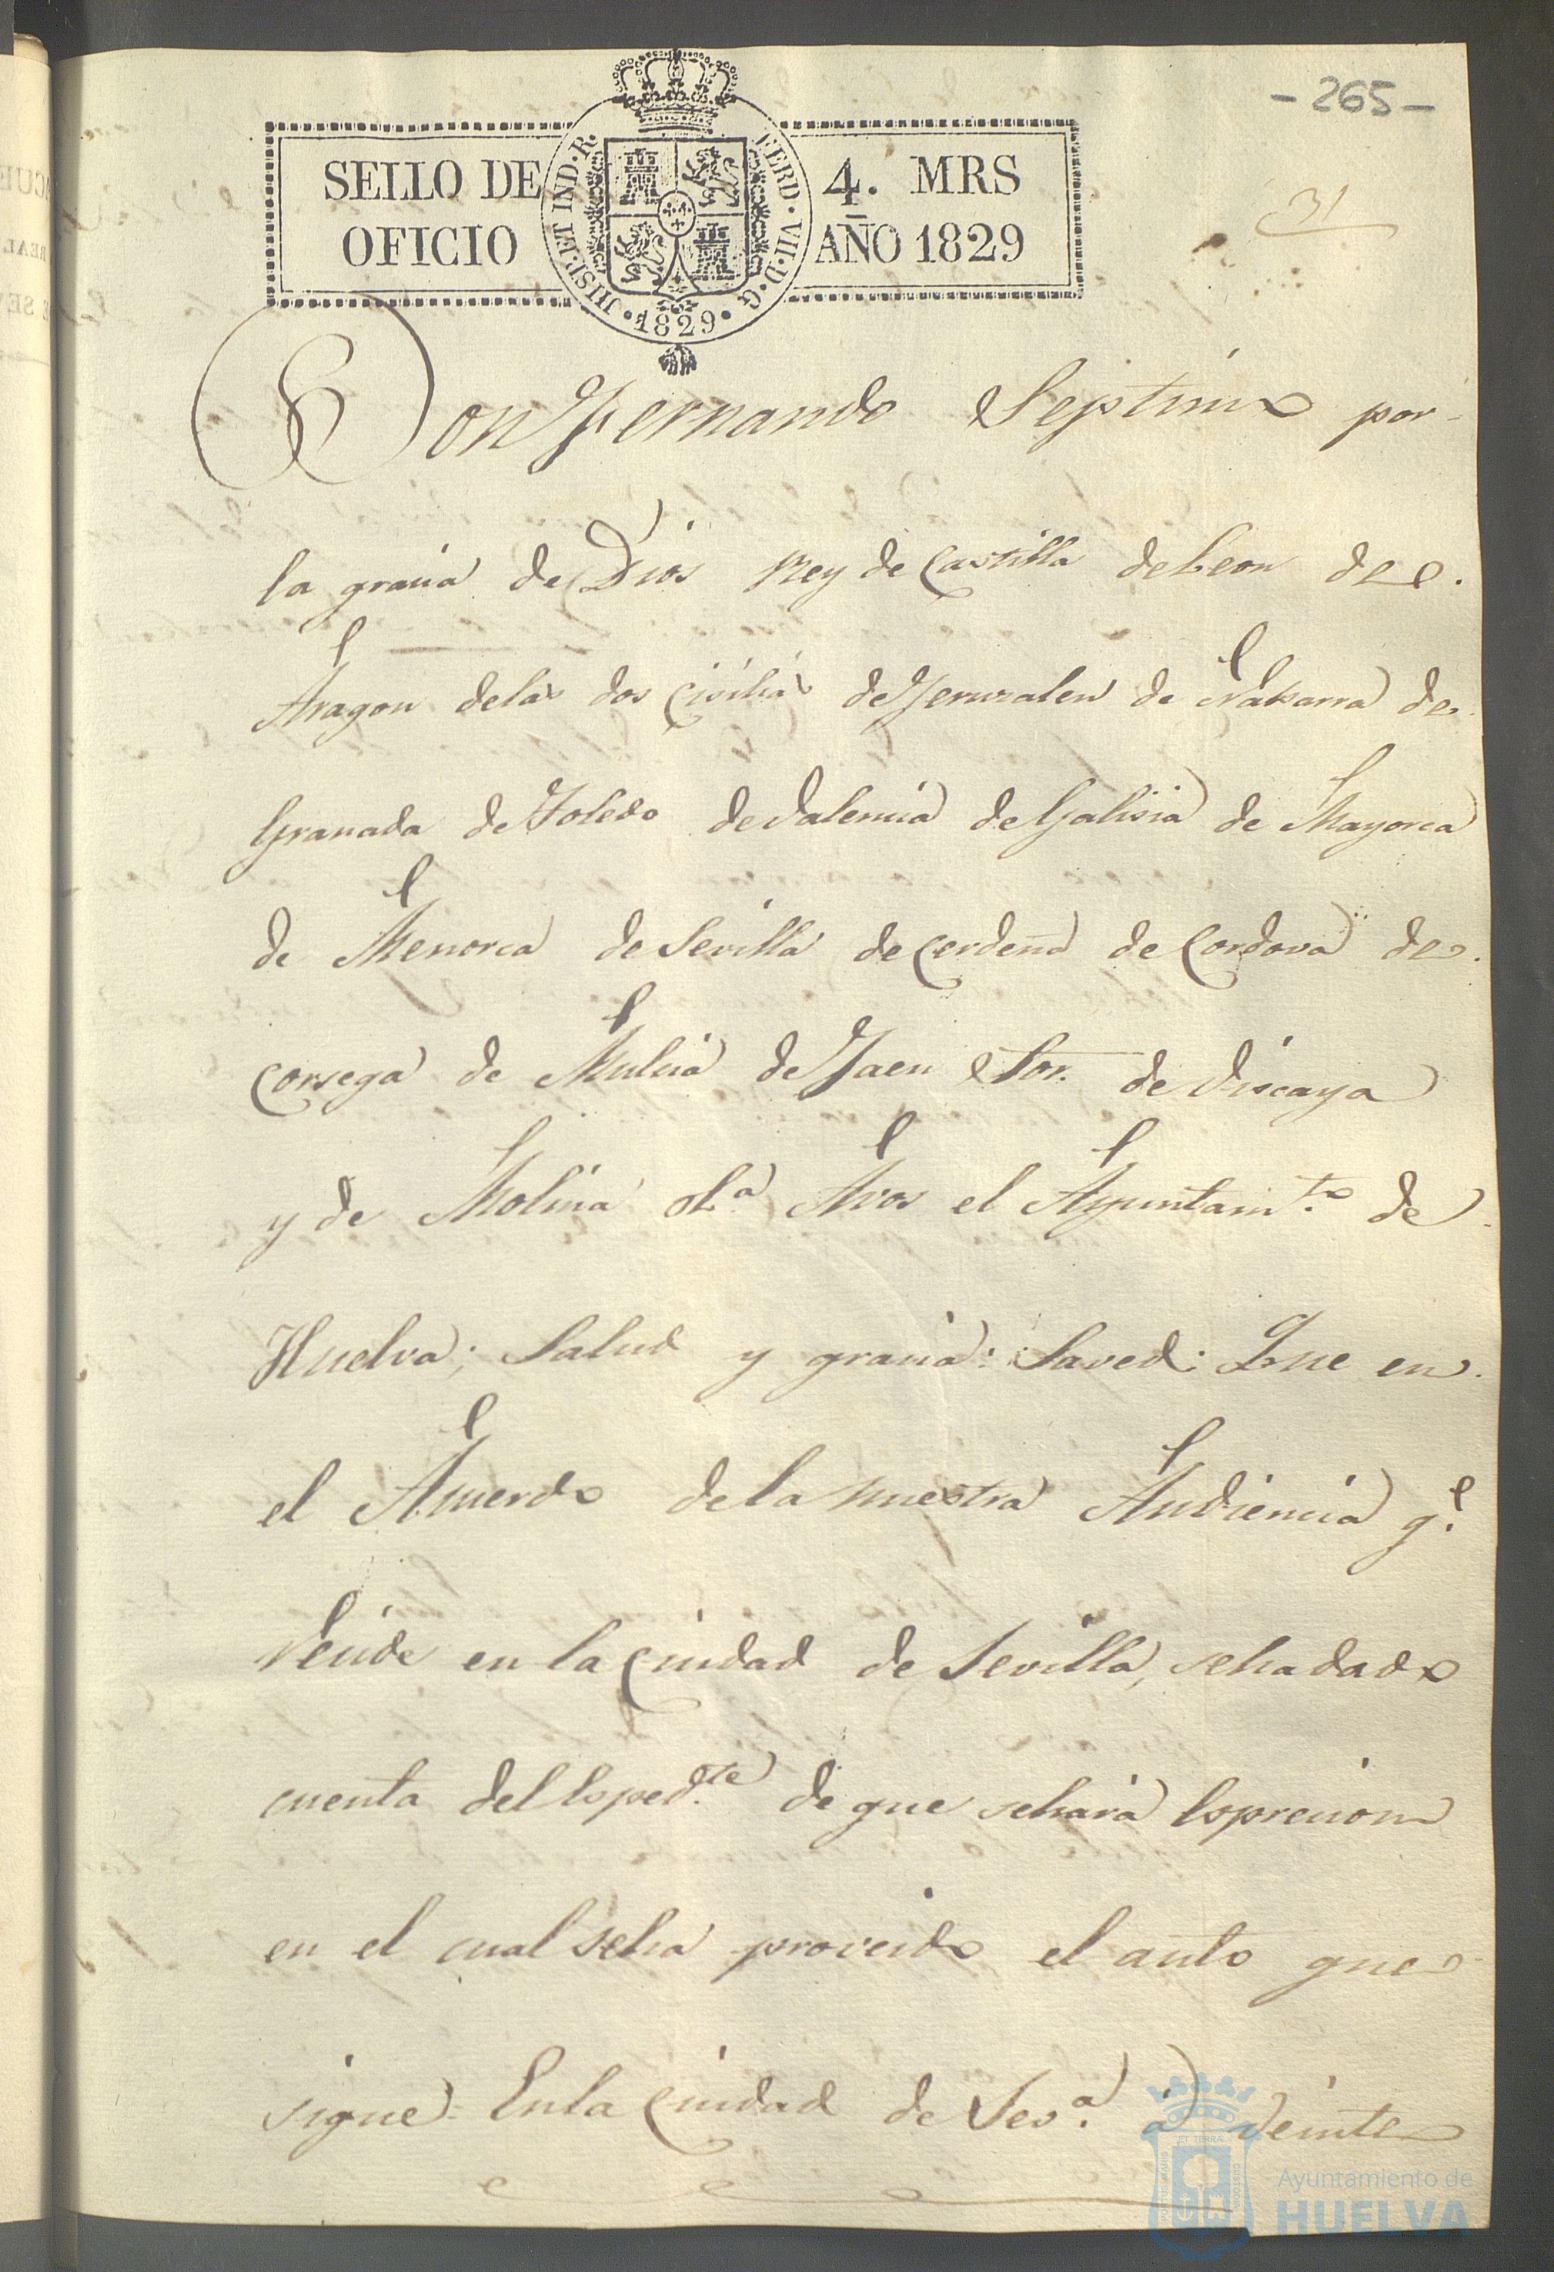 - 265 -
SELLO DE
OFICIO
4. MRS
AÑO 1829
FERD · VII · D · G · 1829 · HISP. ET IND · R ·
31
Don Fernando Septimo por
la gracia de Dios Rey de Castilla de Leon de
Aragon de las dos Cicilias de Jeruzalen de Nabarra de
Granada de Toledo de Valencia de Galisia de Mayorca
de Menorca de Sevilla de Cerdeña de Cordova de
Corsega de Mulcia de Jaen Sor. de Viscaya
y de Molina &.a A vos el Ayuntam.to de
Huelva; Salud y gracia: Saved: Que en
el Acuerdo de la nuestra Audiencia q.e
recide en la Ciudad de Sevilla, se ha dado
cuenta del Esped.te de que se hará Esprecion
en el cual se ha proveido el auto que
sigue = En la Ciudad de Sev.a á veinte
Ayuntamiento de
HUELVA